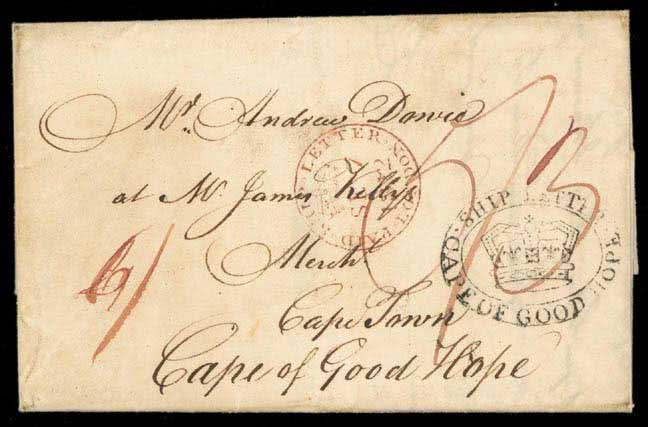 Mr. Andrew Dowie
at Mr. James Kelly's
Mercht
Cape Town
Cape of Good Hope
SHIP LETTER
CAPE OF GOOD HOPE
SHIP LETTER LONDON
PAID